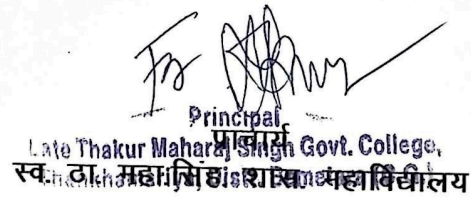 For
Principal
प्राचार्य
Late Thakur Maharaj Singh Govt. College,
स्व. ठा. महा. सिंह. शास. महाविद्यालय
Dist.